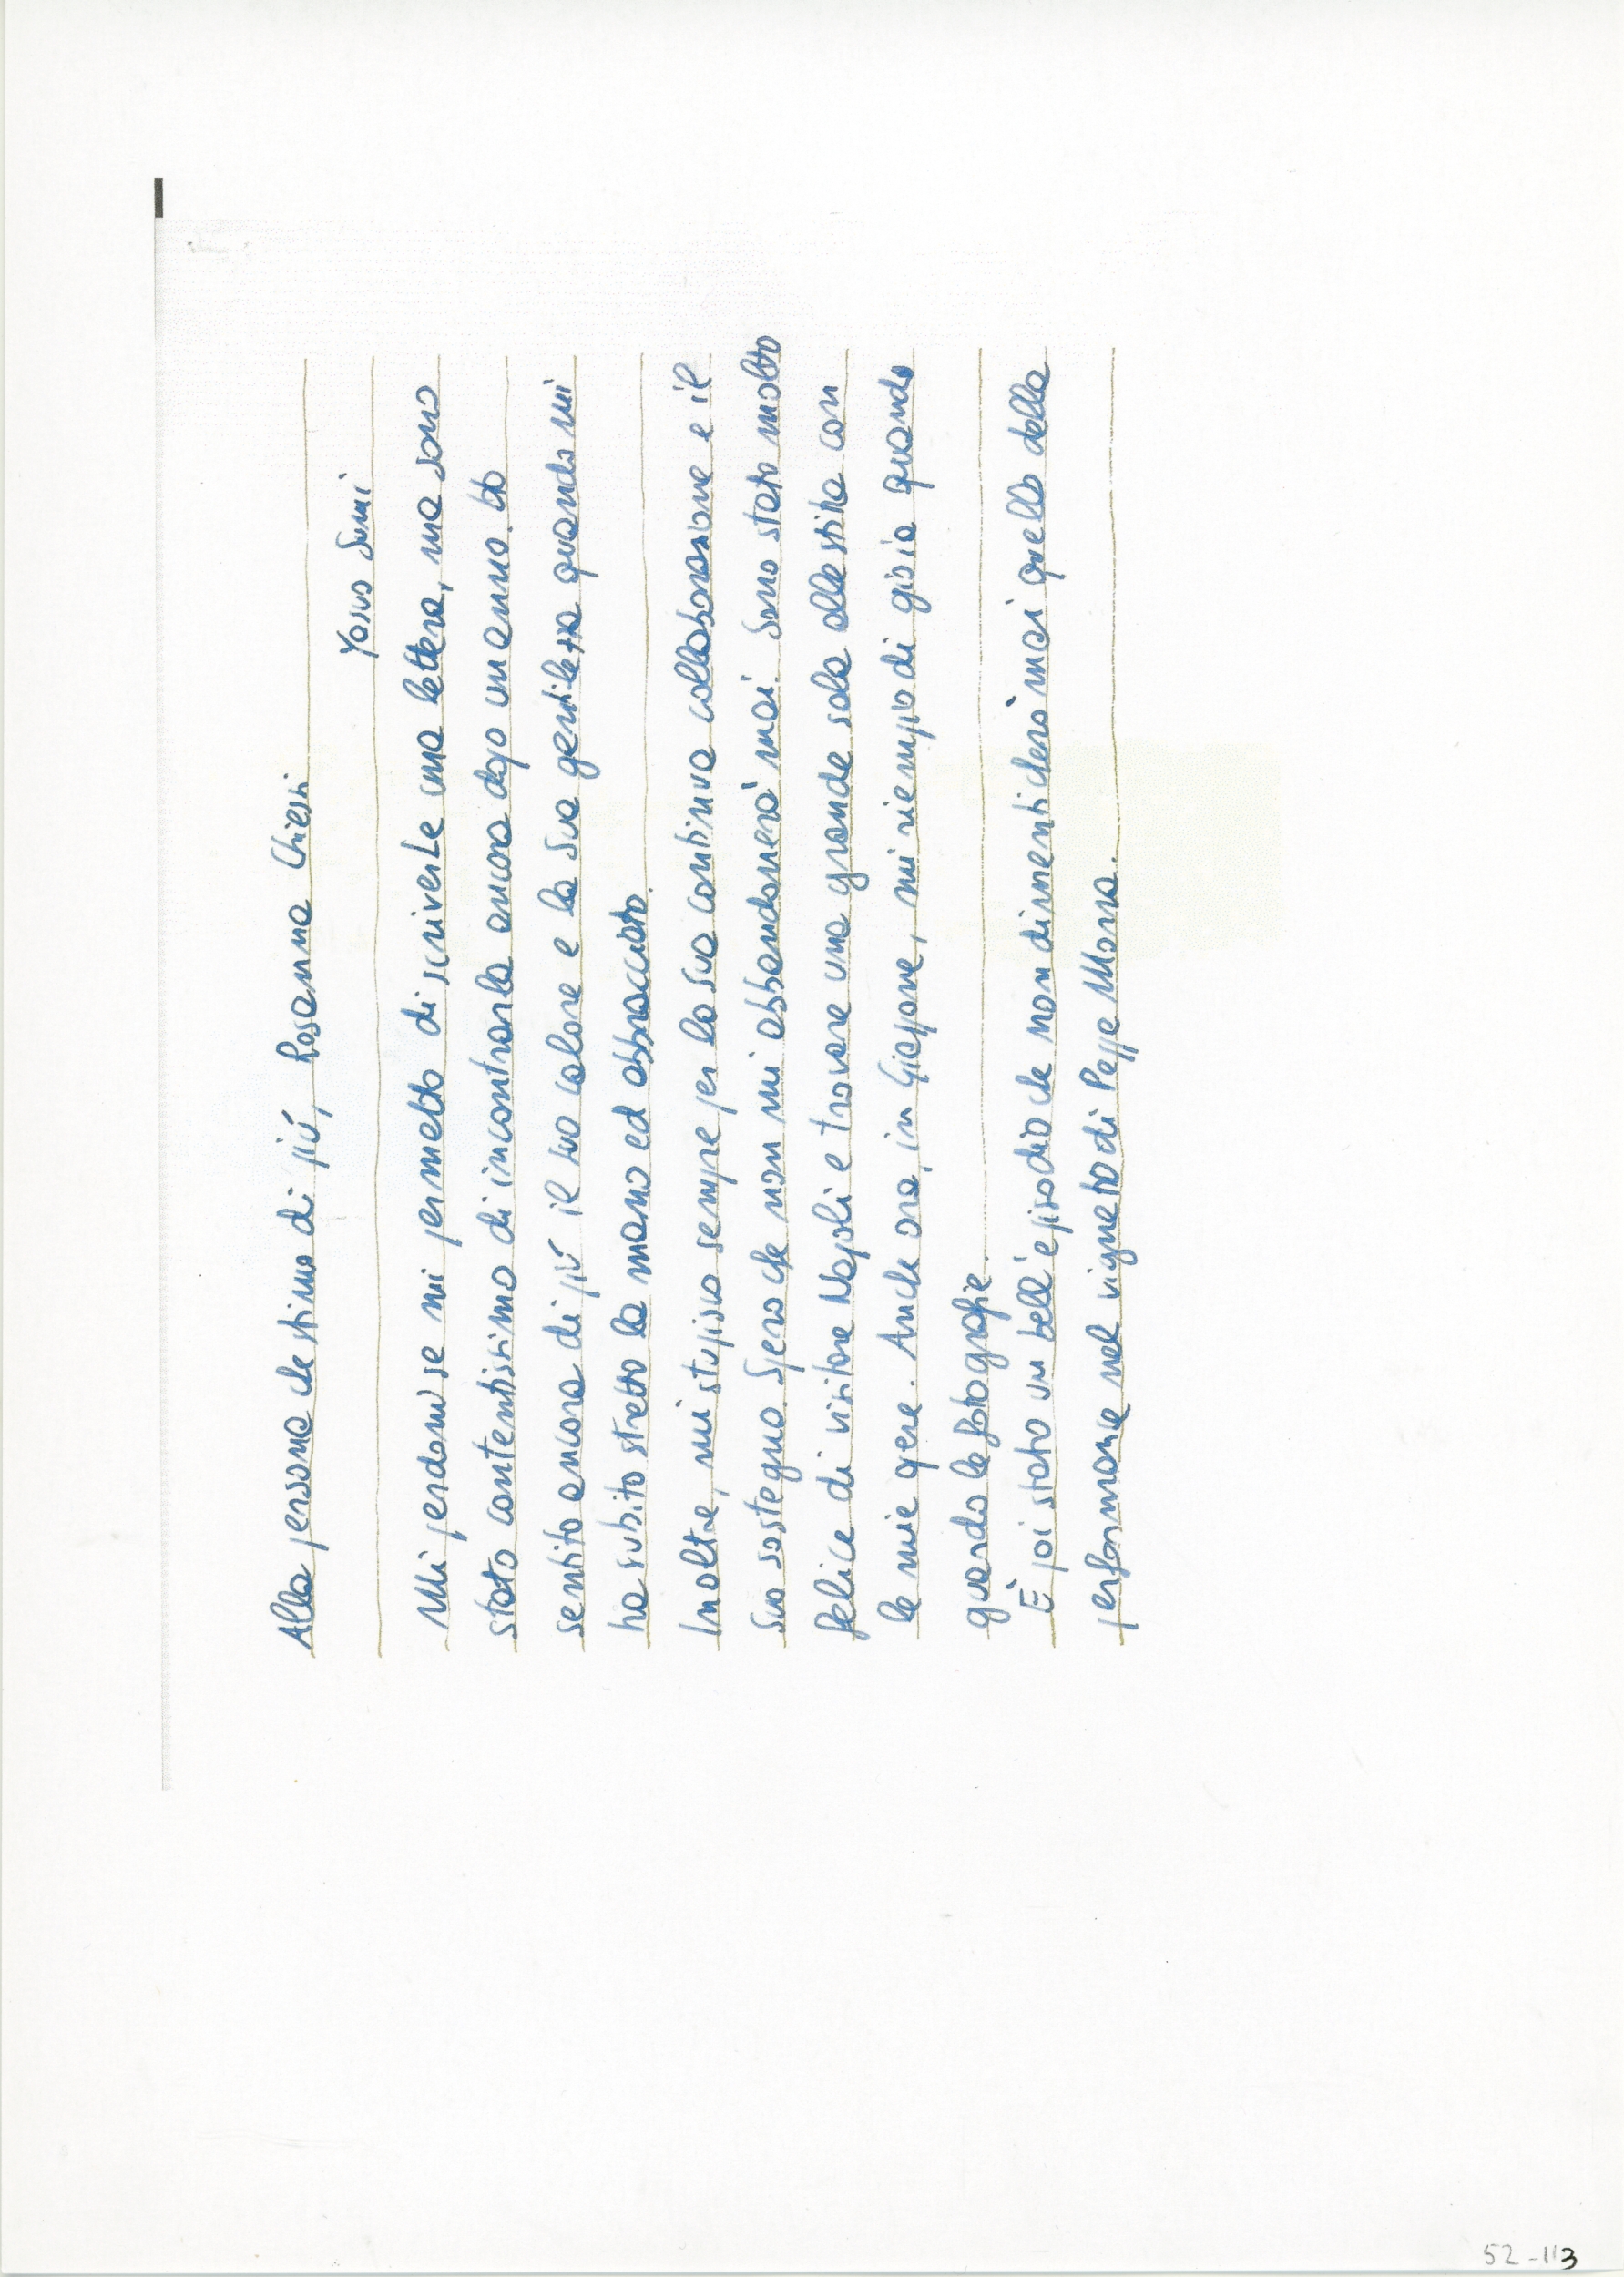 Alla persona che stimo di più, Rosanna Chiessi
Yasuo Sumi
Mi perdoni se mi permetto di scriverLe una lettera, ma sono
stato contentissimo di incontrarla ancora dopo un anno. Ho
sentito ancora di più il suo calore e la Sua gentilezza quando mi
ha subito stretto la mano ed abbracciato.
Inoltre, mi stupisco sempre per la sua continua collaborazione e il
Suo sostegno. Spero che non mi abbandonerà mai. Sono stato molto
felice di visitare Napoli e trovare una grande sala allestita con
le mie opere. Anche ora, in Giappone, mi riempio di gioia quando
guardo le fotografie.
È poi stato un bell'episodio che non dimenticherò mai quello della
performance nel vigneto di Peppe Morra.
52-113